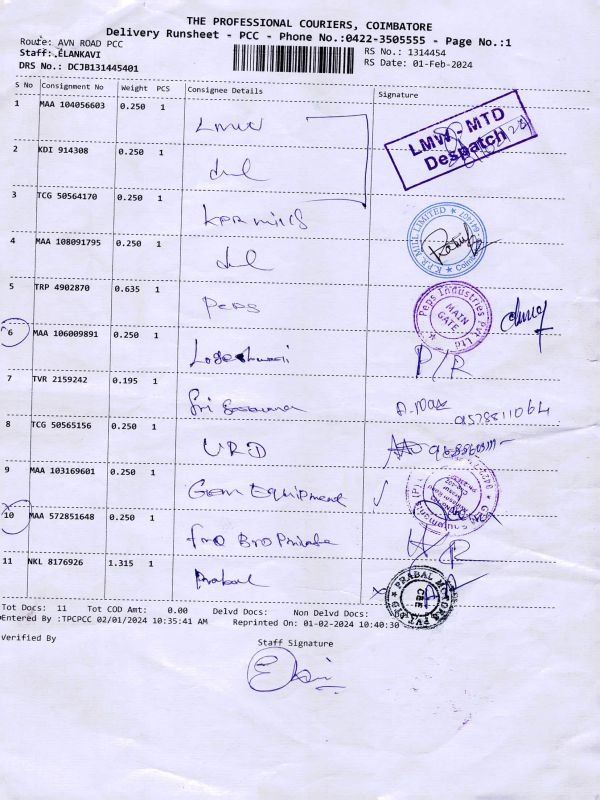 THE PROFESSIONAL COURIERS, COIMBATORE
Delivery Runsheet - PCC - Phone No.:0422-3505555 - Page No.:1
Route: AVN ROAD PCC
RS No.: 1314454
Staff: ELANKAVI
RS Date: 01-Feb-2024
DRS No.: DCJB131445401
S No Consignment No Weight PCS Consignee Details Signature
1 MAA 104056603 0.250 1 LMW LMW - MTD Despatch
2 KDI 914308 0.250 1
3 TCG 50564170 0.250 1 KPR mills K.P.R. MILL LIMITED
4 MAA 108091795 0.250 1
5 TRP 4902870 0.635 1 Peps Peps Industries Pvt Ltd MAIN GATE
6 MAA 106009891 0.250 1 P/R
7 TVR 2159242 0.195 1 Sri
8 TCG 50565156 0.250 1 URD
9 MAA 103169601 0.250 1 Gem Equipment
10 MAA 572851648 0.250 1
11 NKL 8176926 1.315 1 Prabal PRABAL MOTORS PVT LTD CBE
Tot Docs: 11 Tot COD Amt: 0.00 Delvd Docs: Non Delvd Docs:
Entered By :TPCPCC 02/01/2024 10:35:41 AM Reprinted On: 01-02-2024 10:40:30
Verified By
Staff Signature